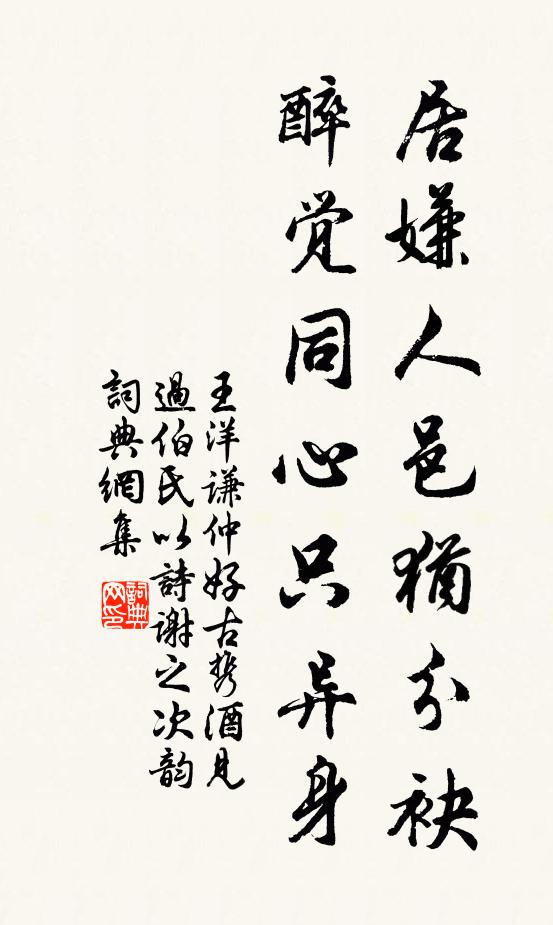 居嫌人邑犹分袂
醉觉同心只异身
王洋谦仲好古携酒见
過伯氏以詩谢之次韵
詞典網集
詞典
网印